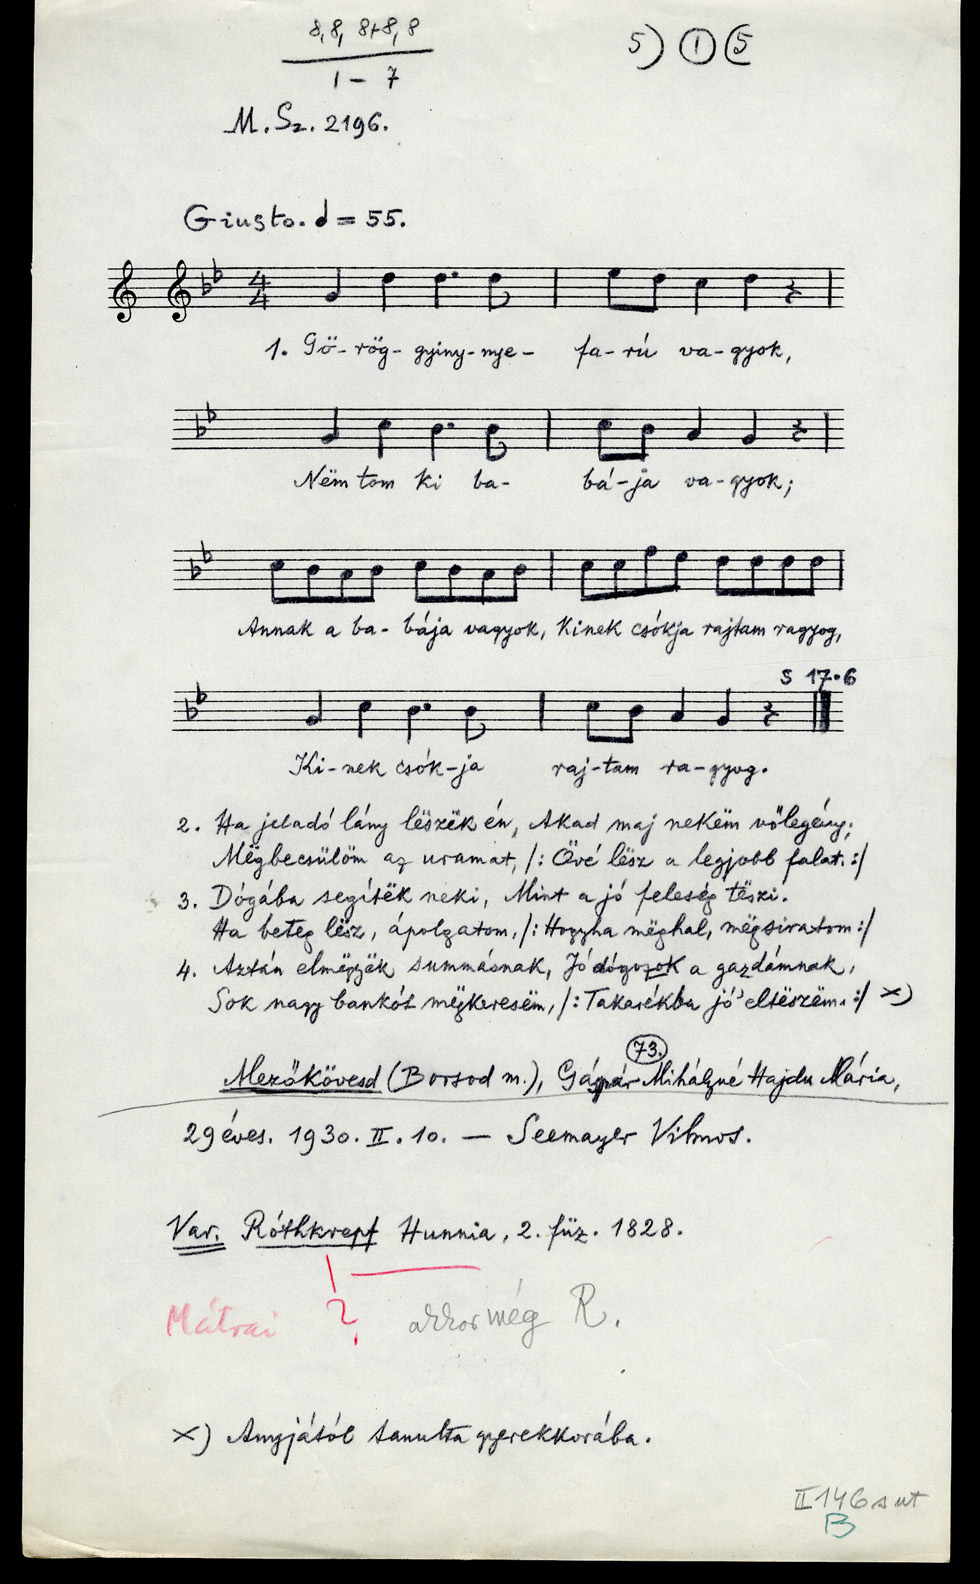 8, 8, 8+8, 8
5) ① (5
1 – 7
M. Sz. 2196.
Giusto. 𝅗𝅥 = 55.
4
4
1. Gö- rög- gyiny-nye- fa- rú va- gyok,
Nëm tom ki ba- bá-ja va- gyok;
Annak a ba- bája vagyok, Kinek csókja rajtam ragyog,
S 17·6
Ki-nek csók-ja raj-tam ra-gyog.
2. Ha jeladó lány lëszëk én, Akad maj nekëm vőlegény;
Mëgbecsülöm az uramat, /: Övé lësz a legjobb falat. :/
3. Dógába segítëk neki, Mint a jó feleség tëszi.
Ha beteg lësz, ápolgatom, /: Hogyha mëghal, mëgsiratom :/
4. Aztán elmëgyëk summásnak, Jó dógozok a gazdámnak,
Sok nagy bankót mëgkeresëm, /: Takarékba jó' eltëszëm. :/ ×)
73.
Mezőkövesd (Borsod m.), Gáspár Mihályné Hajdu Mária,
29 éves. 1930. II. 10. — Seemayer Vilmos.
Var. Róthkrepf Hunnia, 2. füz. 1828.
Mátrai ? akkor még R.
×) Anyjától tanulta gyerekkorába.
II 146 s ut
B